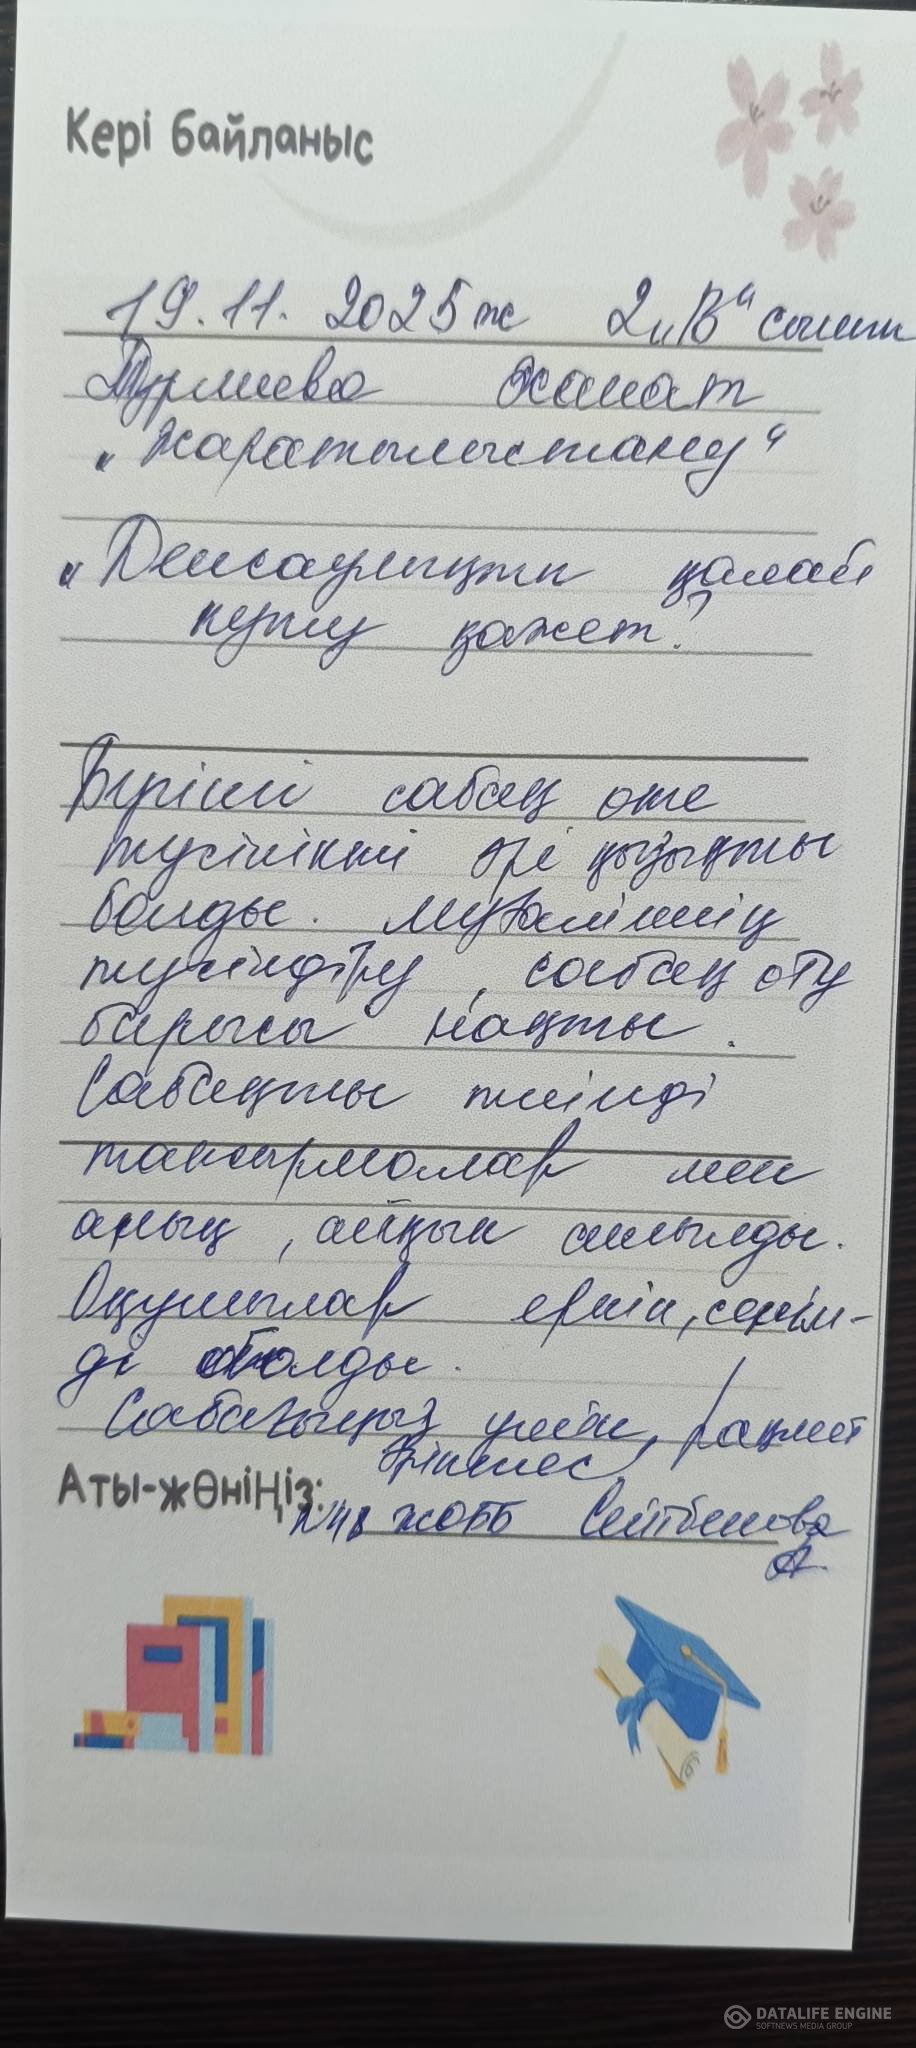 Кері байланыс
19.11. 2025 ж 2 „В“ сынып
Жанат
„Жаратылыстану“
„Денсаулықты қалай
күту қажет?
Бүгінгі сабақ өте
түсінікті әрі қызықты
болды. Мұғалімнің
түсіндіру, сабақ өту
барысы нақты.
Сабақты тиімді
тапсырмалар мен
анық, айқын ашылды.
Оқушылар еркін, сенім-
ді болды.
Сабағыңыз үшін, рахмет
әріптес!
Аты-жөніңіз:
ЖОББ Сейтбекова
А.
DATALIFE ENGINE
SOFTNEWS MEDIA GROUP